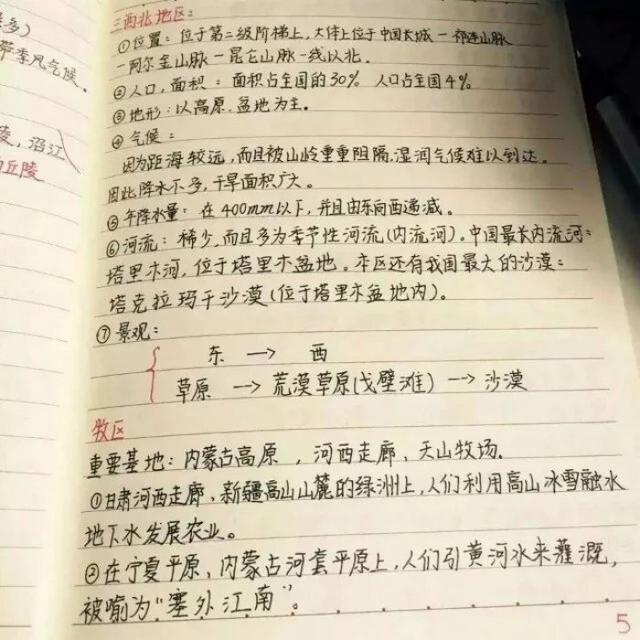 多)
带季风气候。
陵, 沿江
丘陵
三西北地区:
①位置: 位于第二级阶梯上,大体上位于中国长城一祁连山脉
一阿尔金山脉一昆仑山脉一线以北.
②人口,面积: 面积占全国的30% 人口占全国4%
③地形: 以高原.盆地为主。
④气候:
因为距海较远,而且被山岭重重阻隔,湿润气候难以到达。
因此降水不多,干旱面积广大。
⑤年降水量: 在400mm以下,并且由东向西递减。
⑥河流: 稀少,而且多为季节性河流(内流河).中国最长内流河:
塔里木河,位于塔里木盆地。本区还有我国最大的沙漠:
塔克拉玛干沙漠(位于塔里木盆地内)。
⑦景观:
东 → 西
草原 → 荒漠草原(戈壁滩) → 沙漠
牧区
重要基地: 内蒙古高原 , 河西走廊、天山牧场.
①甘肃河西走廊、新疆高山山麓的绿洲上,人们利用高山冰雪融水
地下水发展农业。
②在宁夏平原、内蒙古河套平原上,人们引黄河水来灌溉,
被喻为“塞外江南”。
5